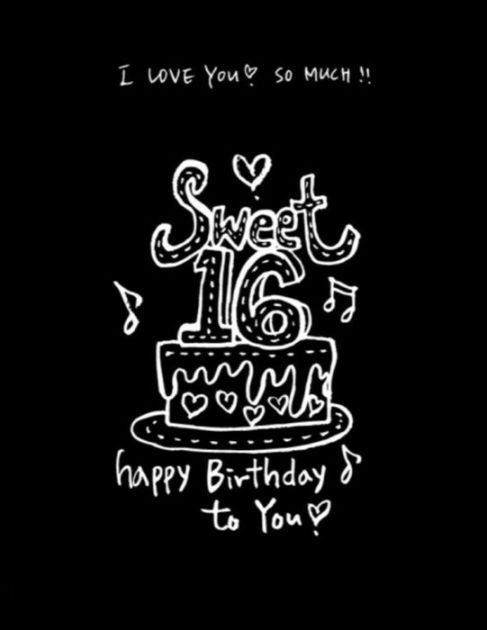 I LOVE YOU♡ SO MUCH!!
Sweet
16
happy Birthday
to You♡